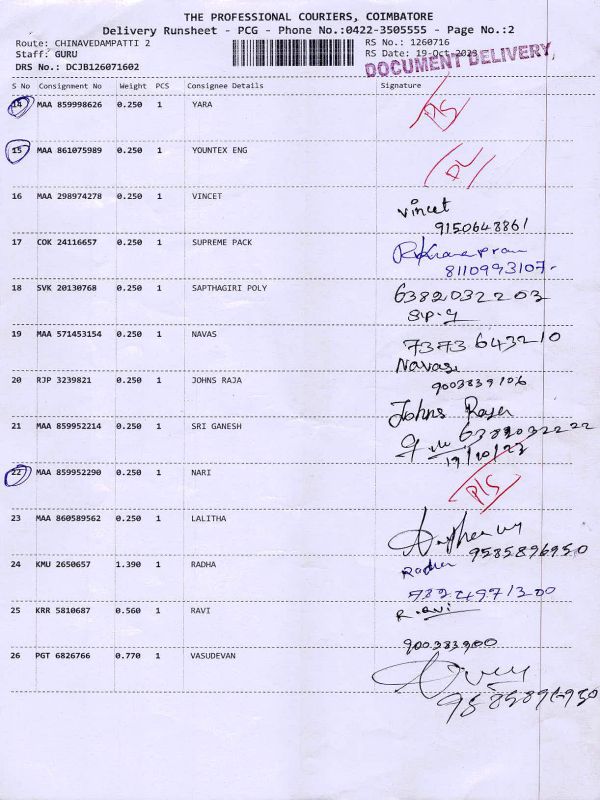 THE PROFESSIONAL COURIERS, COIMBATORE
Delivery Runsheet - PCG - Phone No.:0422-3505555 - Page No.:2
Route: CHINAVEDAMPATTI 2 RS No.: 1260716
Staff: GURU RS Date: 19-Oct-2023
DRS No.: DCJB126071602 DOCUMENT DELIVERY
S No Consignment No Weight PCS Consignee Details Signature
14 MAA 859998626 0.250 1 YARA
15 MAA 861075989 0.250 1 YOUNTEX ENG
16 MAA 298974278 0.250 1 VINCET Vincet
9150643861
17 COK 24116657 0.250 1 SUPREME PACK
8110993107
18 SVK 20130768 0.250 1 SAPTHAGIRI POLY 6382032203
19 MAA 571453154 0.250 1 NAVAS 7373643210
Navas
20 RJP 3239821 0.250 1 JOHNS RAJA 9003839106
Johns Raja
21 MAA 859952214 0.250 1 SRI GANESH 6382032222
19/10/23
22 MAA 859952290 0.250 1 NARI P/S
23 MAA 860589562 0.250 1 LALITHA
9585896950
24 KMU 2650657 1.390 1 RADHA Radha
25 KRR 5810687 0.560 1 RAVI R.avi
900383900
26 PGT 6826766 0.770 1 VASUDEVAN
9585896950